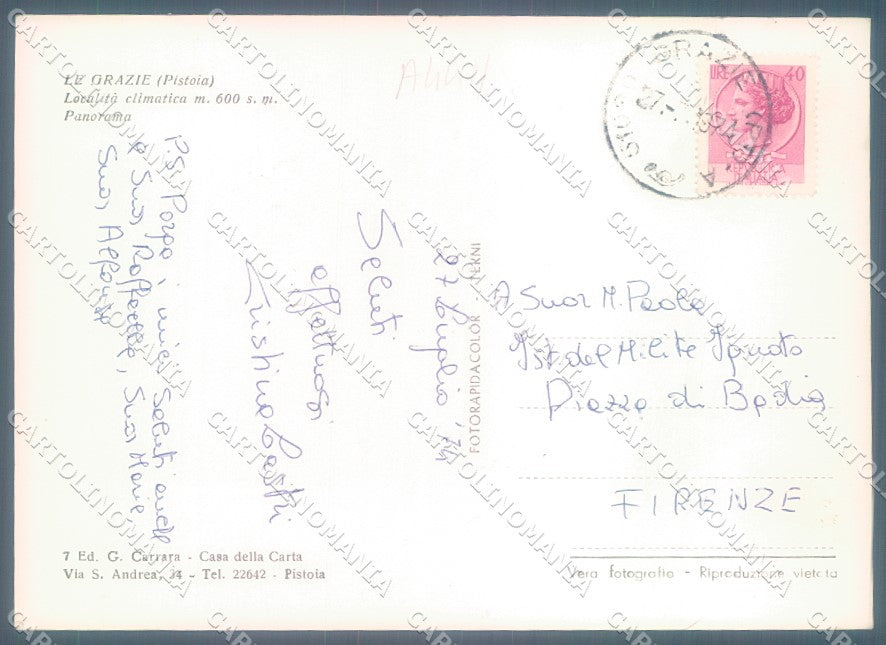 LE GRAZIE (Pistoia)
Località climatica m. 600 s. m.
Panorama
A444
LIRE 40
GRAZIE
27 Luglio '74
Saluti
affettuosi
Cristina
P.S. Porga i miei saluti anche
a Suor Raffaella, Suor Maria
Suor Alfonsa
FOTORAPIDACOLOR - TERNI
A Suor M. Paola
Ist. del Milite Ignoto
Piazza di Badia
FIRENZE
7 Ed. G. Carrara - Casa della Carta
Via S. Andrea, 34 - Tel. 22642 - Pistoia
Vera fotografia - Riproduzione vietata
CARTOLINOMANIA